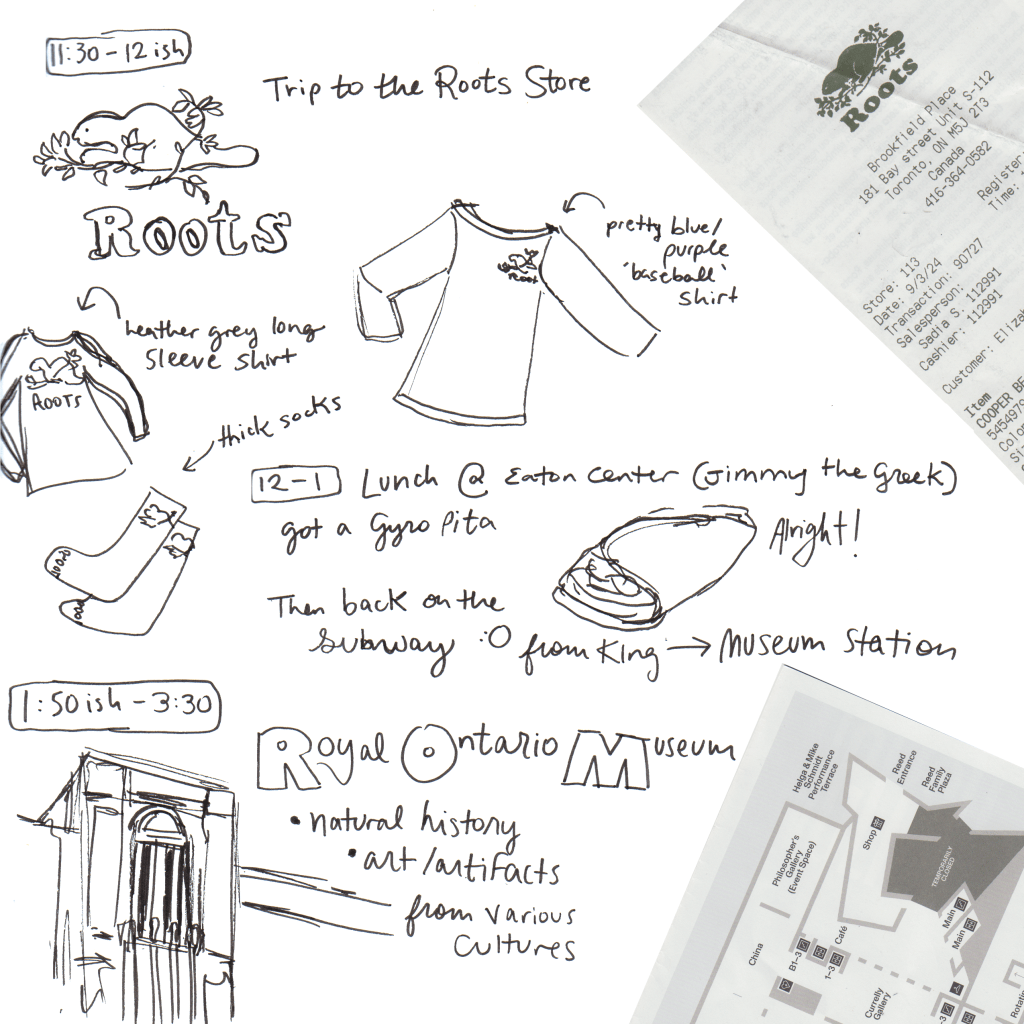 11:30-12ish
Trip to the Roots Store
Roots
pretty blue/
purple
'baseball'
shirt
ROOT
heather grey long
sleeve shirt
ROOTS
thick socks
12-1 Lunch @ Eaton Center (Jimmy the Greek)
got a Gyro Pita
Alright!
Then back on the
subway :O from King → Museum Station
1:50ish-3:30
Royal Ontario Museum
• natural history
• art/artifacts
from various
cultures
Roots
Brookfield Place
181 Bay street Unit S-112
Toronto, ON M5J 2T3
Canada
416-364-0582
Register
Time:
Store: 113
Date: 9/3/24
Transaction: 90727
Salesperson:
Sadia S. 112991
Cashier: 112991
Customer: Eliza
Item
COOPER BE
545497
Colo
Helga & Mike
Schmidt
Performance
Terrace
Reed
Entrance
Reed
Family
Plaza
Philosopher's
Gallery
(Event Space)
Shop
TEMPORARILY
CLOSED
China
B1-3
1-3
Café
Main
Main
Currelly
Gallery
-3
Rotat